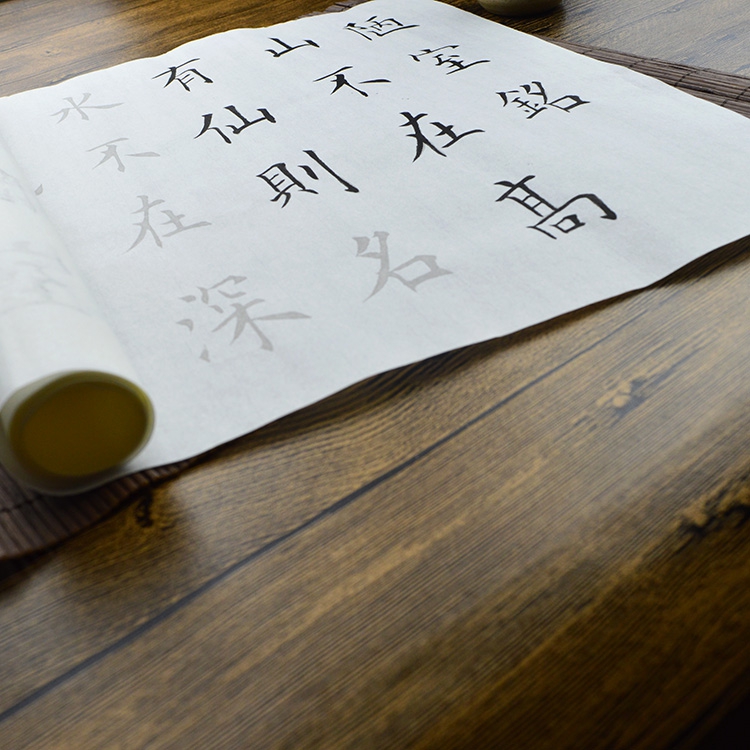 陋室銘
山不在髙
有仙則名
水不在深